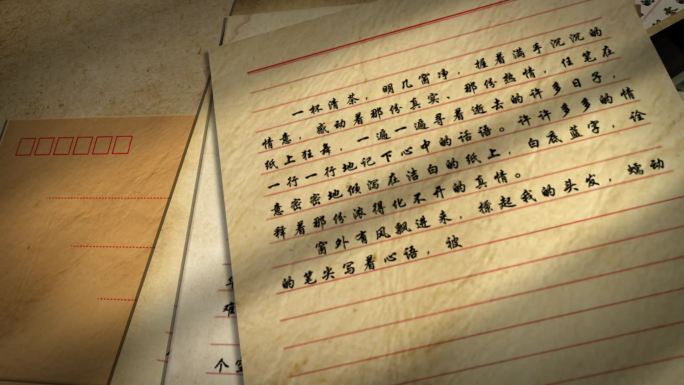 一杯清茶，明几窗净，握着满手沉沉的
情意，感动着那份真实、那份热情，任笔在
纸上狂舞，一遍一遍寻着逝去的许多日子，
一行一行地记下心中的话语。许许多多的情
意密密地倾泻在洁白的纸上，白底蓝字，诠
释着那份浓得化不开的真情。
窗外有风飘进来，撩起我的头发，蠕动
的笔尖写着心语，被
难
个